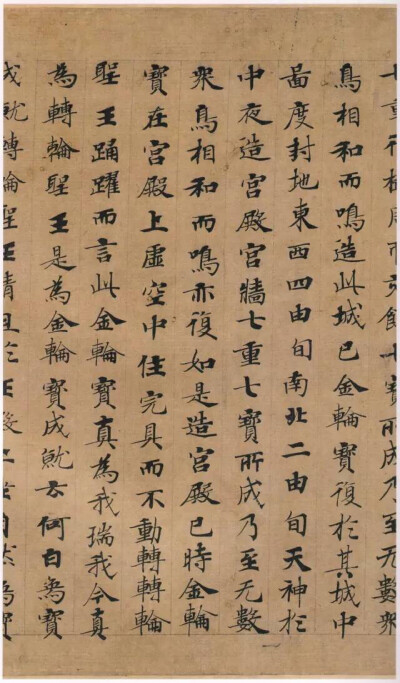 七重行樹周帀交飾七寶所成乃至无數衆
鳥相和而鳴造此城已金輪寶復於其城中
啚度封地東西四由旬南北二由旬天神於
中夜造宫殿宫牆七重七寶所成乃至无數
衆鳥相和而鳴亦復如是造宫殿已時金輪
寶在宫殿上虛空中住完具而不動轉轉輪
聖王踊躍而言此金輪寶真為我瑞我今真
為轉輪聖王是為金輪寶成就云何白象寶
成就轉輪聖王清旦於正殿上坐自然象寶